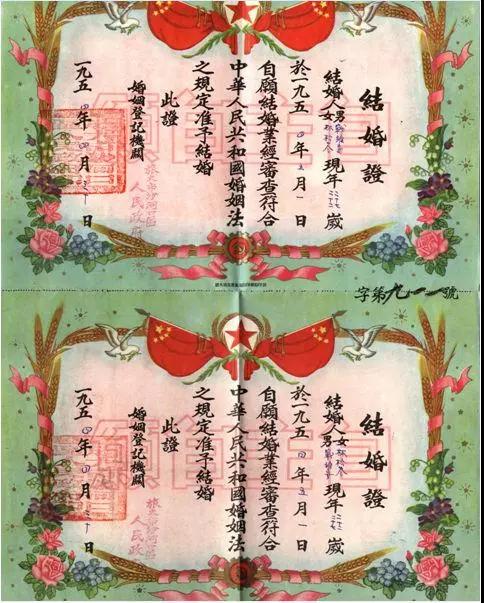 結婚證
結婚人男女現年歲
於一九五四年五月一日
自願結婚業經審查符合
中華人民共和國婚姻法
之規定准予結婚
此證
婚姻登記機關
旅大市沙河區
人民政府
一九五四年四月三十日
字第九一一號
結婚證
結婚人女男現年歲
於一九五四年五月一日
自願結婚業經審查符合
中華人民共和國婚姻法
之規定准予結婚
此證
婚姻登記機關
人民政
一九五四年四月三十日